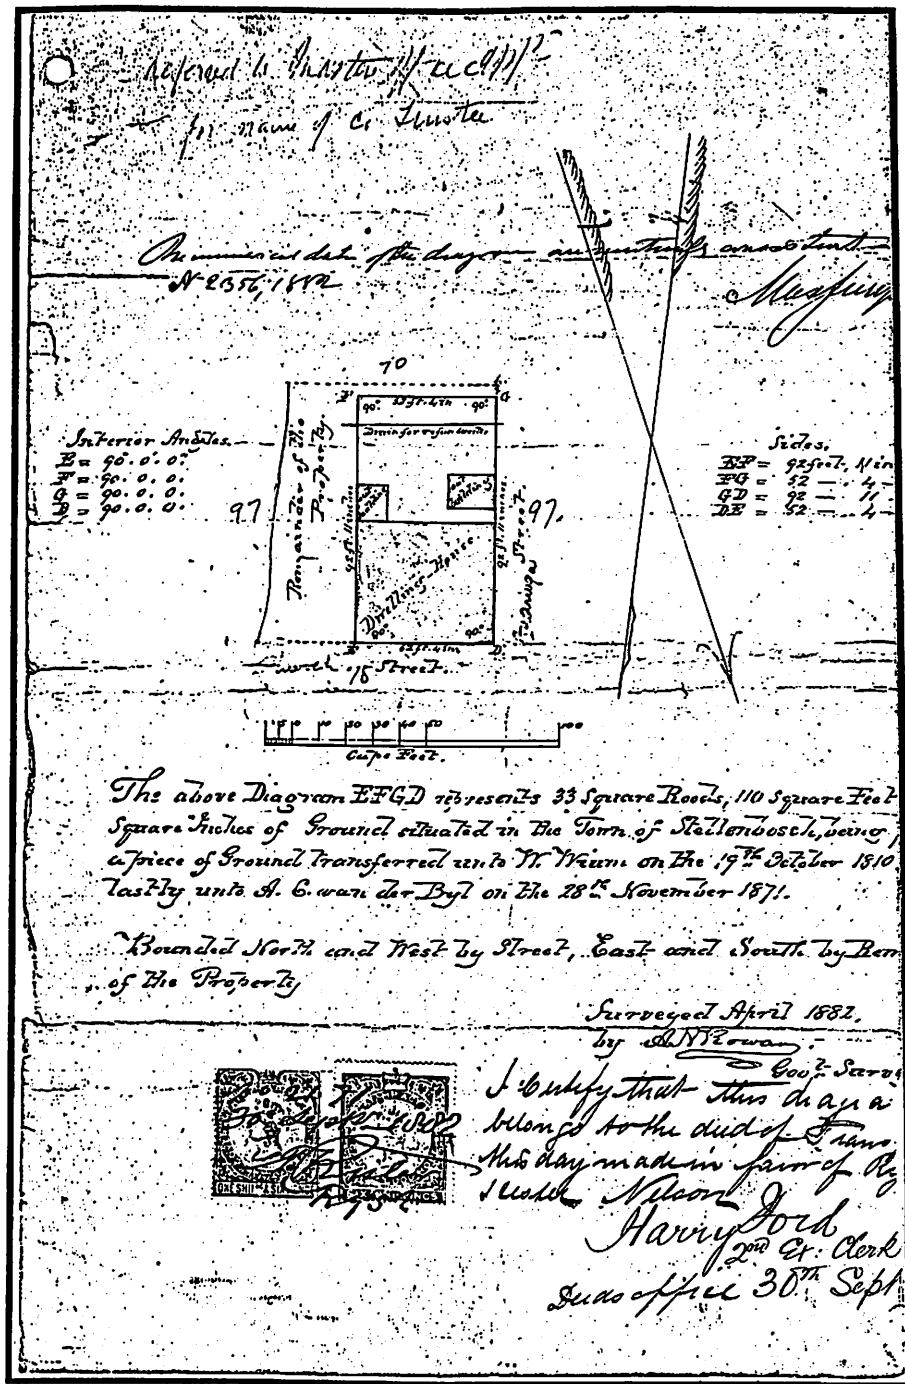 referred to
for name of Co Trustee
The numerical data of the diagram are
No 2356, 1882
70
F 52 ft. 4 in G
90° 90°
Drain for refuse water.
Interior Angles.
E = 90. 0. 0.
F = 90. 0. 0.
G = 90. 0. 0.
D = 90. 0. 0.
Sides.
EF = 92 feet, 11 in
FG = 52 — 4 —
GD = 92 — 11
DE = 52 — 4 —
97
Remainder of the Property.
97.
Street
Dwelling-House
90° 90°
E 52 ft. 4 in D
Street.
5 0 10 20 30 40 50 100
Cape Feet.
The above Diagram EFGD represents 33 Square Roods, 110 Square Feet
Square Inches of Ground situated in the Town of Stellenbosch, being
a piece of Ground transferred unto W. Wium on the 19th October 1810
lastly unto A. C. van der Byl on the 28th November 1871.
Bounded North and West by Street, East and South by Rem
of the Property
Surveyed April 1882.
by A N Rowan
Govt. Surv
I Certify that this diagra
belongs to the deed of Trans
this day made in favor of
Nelson
Harry Ford
2nd Ex: Clerk
Deeds office 30th Sept
1882
ONE SHILL